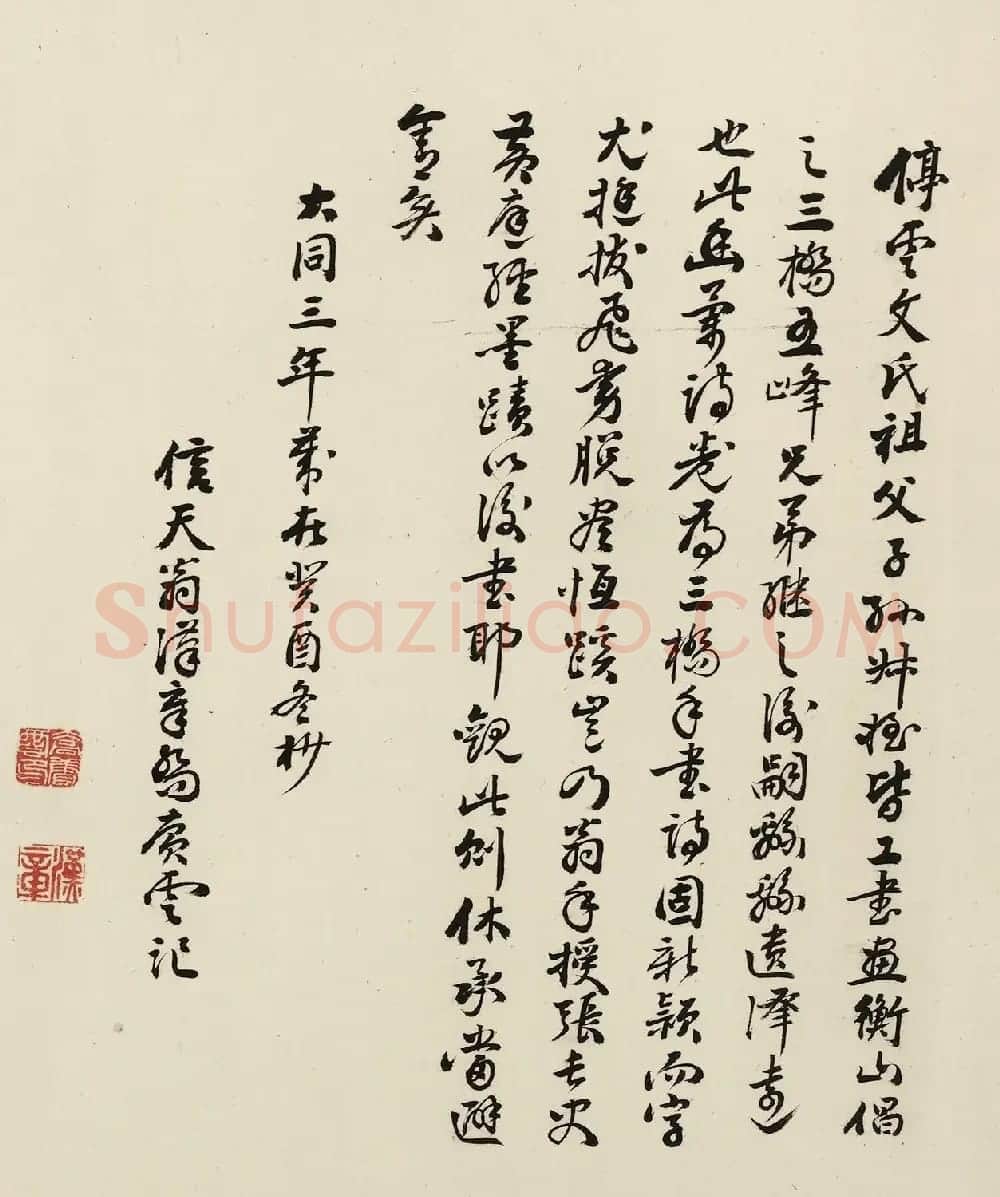 停雲文氏祖父子孫叔姪皆工書畫衡山倡
之三橋五峰兄弟繼之後嗣緜緜遺澤遠
也此幽蘭詩卷為三橋手書詩固新穎而字
尤挺拔飛舞脫盡恒蹊豈乃翁手授張長史
黃庭經墨蹟以後書耶觀此則休承當避
舍矣
大同三年歲在癸酉冬杪
信天翁漢章喬賡雲記
漢章
Shutaziliao.COM